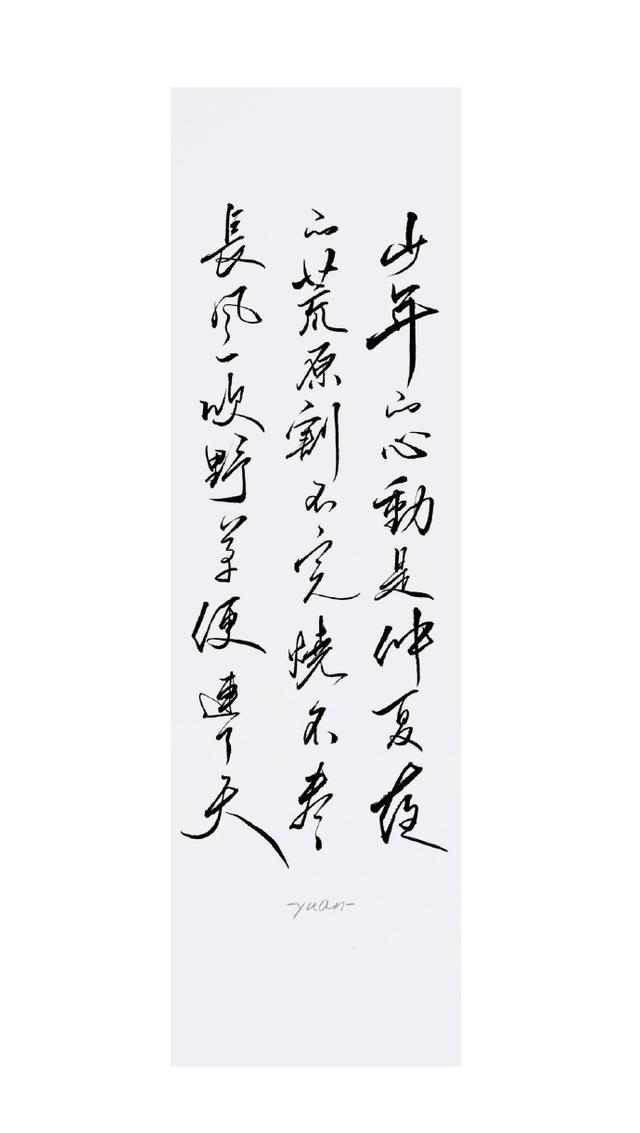 少年的心動是仲夏夜
的荒原割不完燒不盡
長風一吹野草便連了天
-yuan-